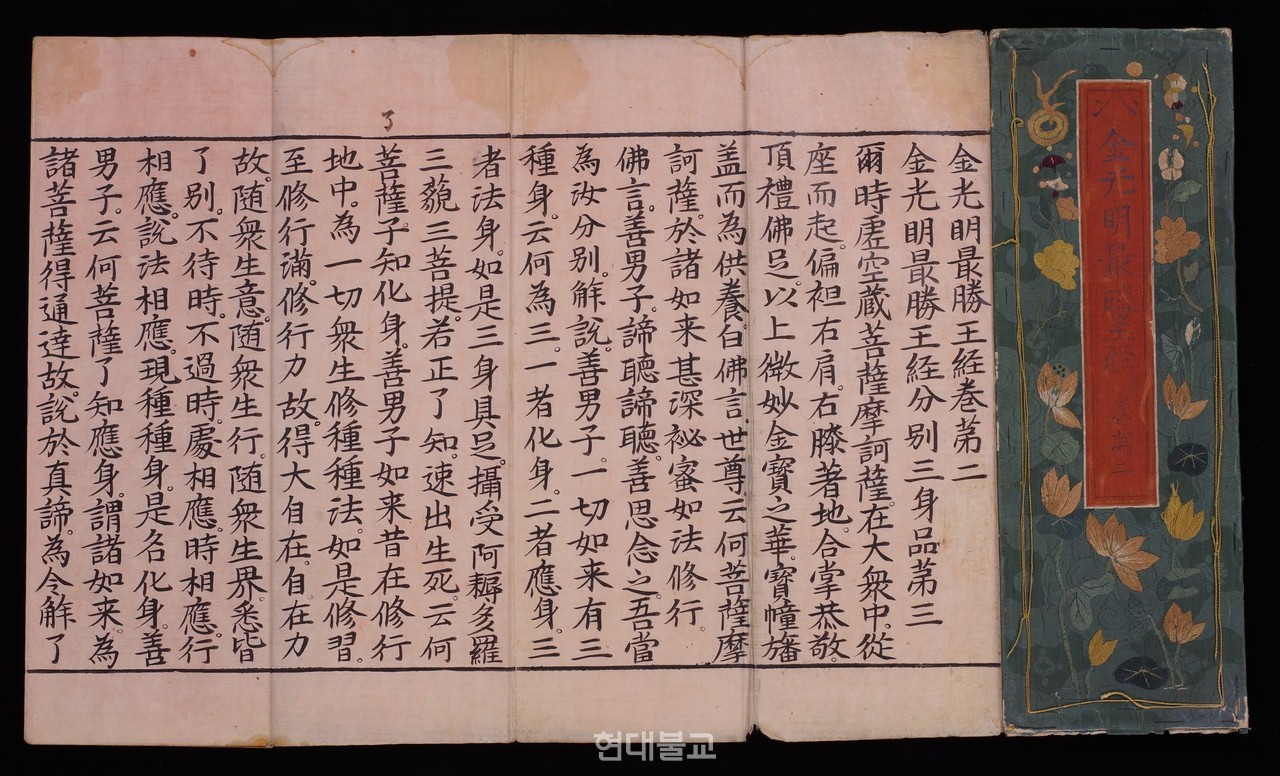 金光明最勝王经 卷第二
金光明最勝王経巻苐二
金光明最勝王経分别三身品苐三
爾時虚空蔵菩薩摩訶薩。在大衆中。從
座而起。偏袒右肩。右膝著地。合掌恭敬。
頂禮佛足。以上微妙金寶之華。寳幢旛
盖而為供養。白佛言。世尊云何菩薩摩
訶薩。於諸如来甚深祕蜜如法修行。
佛言。善男子。諦聽諦聽。善思念之。吾當
為汝分别。解説。善男子。一切如来有三
種身。云何為三。一者化身。二者應身。三
者法身。如是三身具足。攝受阿耨多羅
三藐三菩提若正了知。速出生死。云何
菩薩。了知化身。善男子如来昔在修行
地中。為一切衆生修種種法。如是修習。
至修行滿。修行力故。得大自在。自在力
故。随衆生意。随衆生行。随衆生界。悉皆
了别。不待時。不過時。處相應。時相應。行
相應。説法相應。現種種身。是名化身。善
男子。云何菩薩了知應身。謂諸如来。為
諸菩薩得通達故。説於真諦。為令解了
了
현대불교